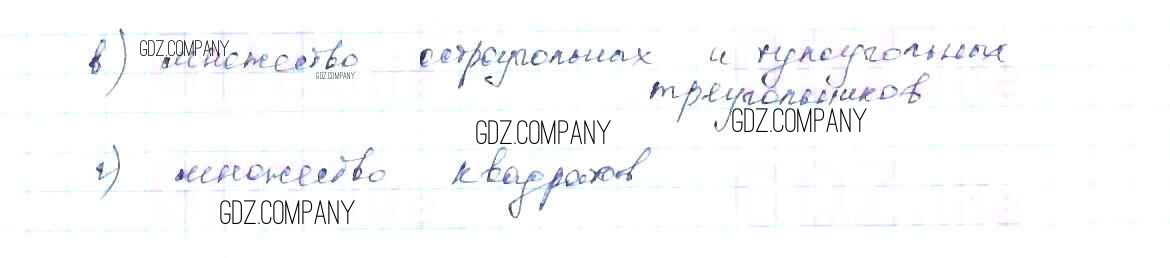 в) множество остроугольных и тупоугольных
треугольников
г) множество квадратов
GDZ.COMPANY
GDZ.COMPANY
GDZ.COMPANY
GDZ.COMPANY
GDZ.COMPANY